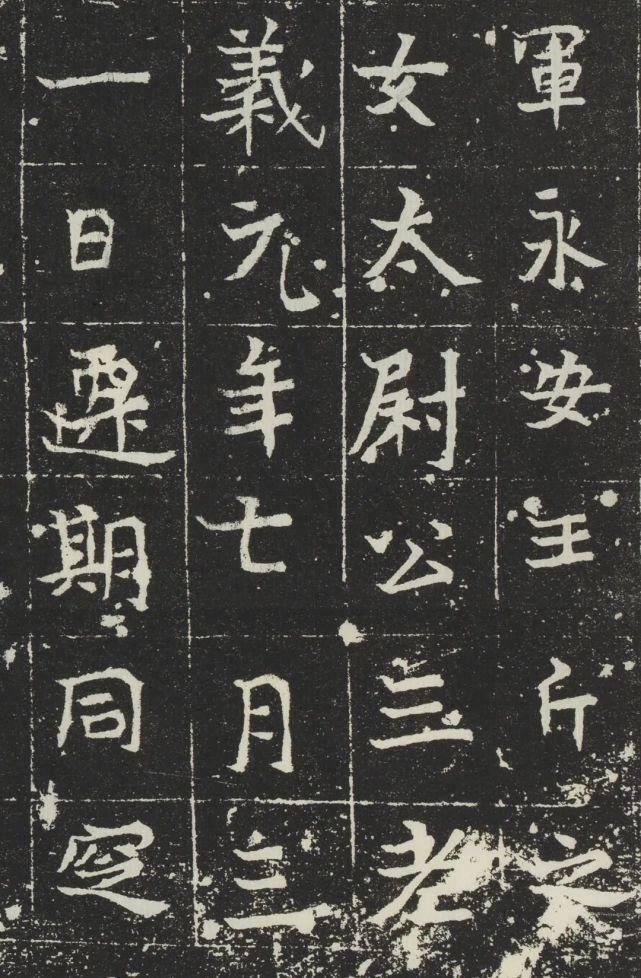 軍永安王斤之
女太尉公三老
義元年七月三
一日遷期同窆